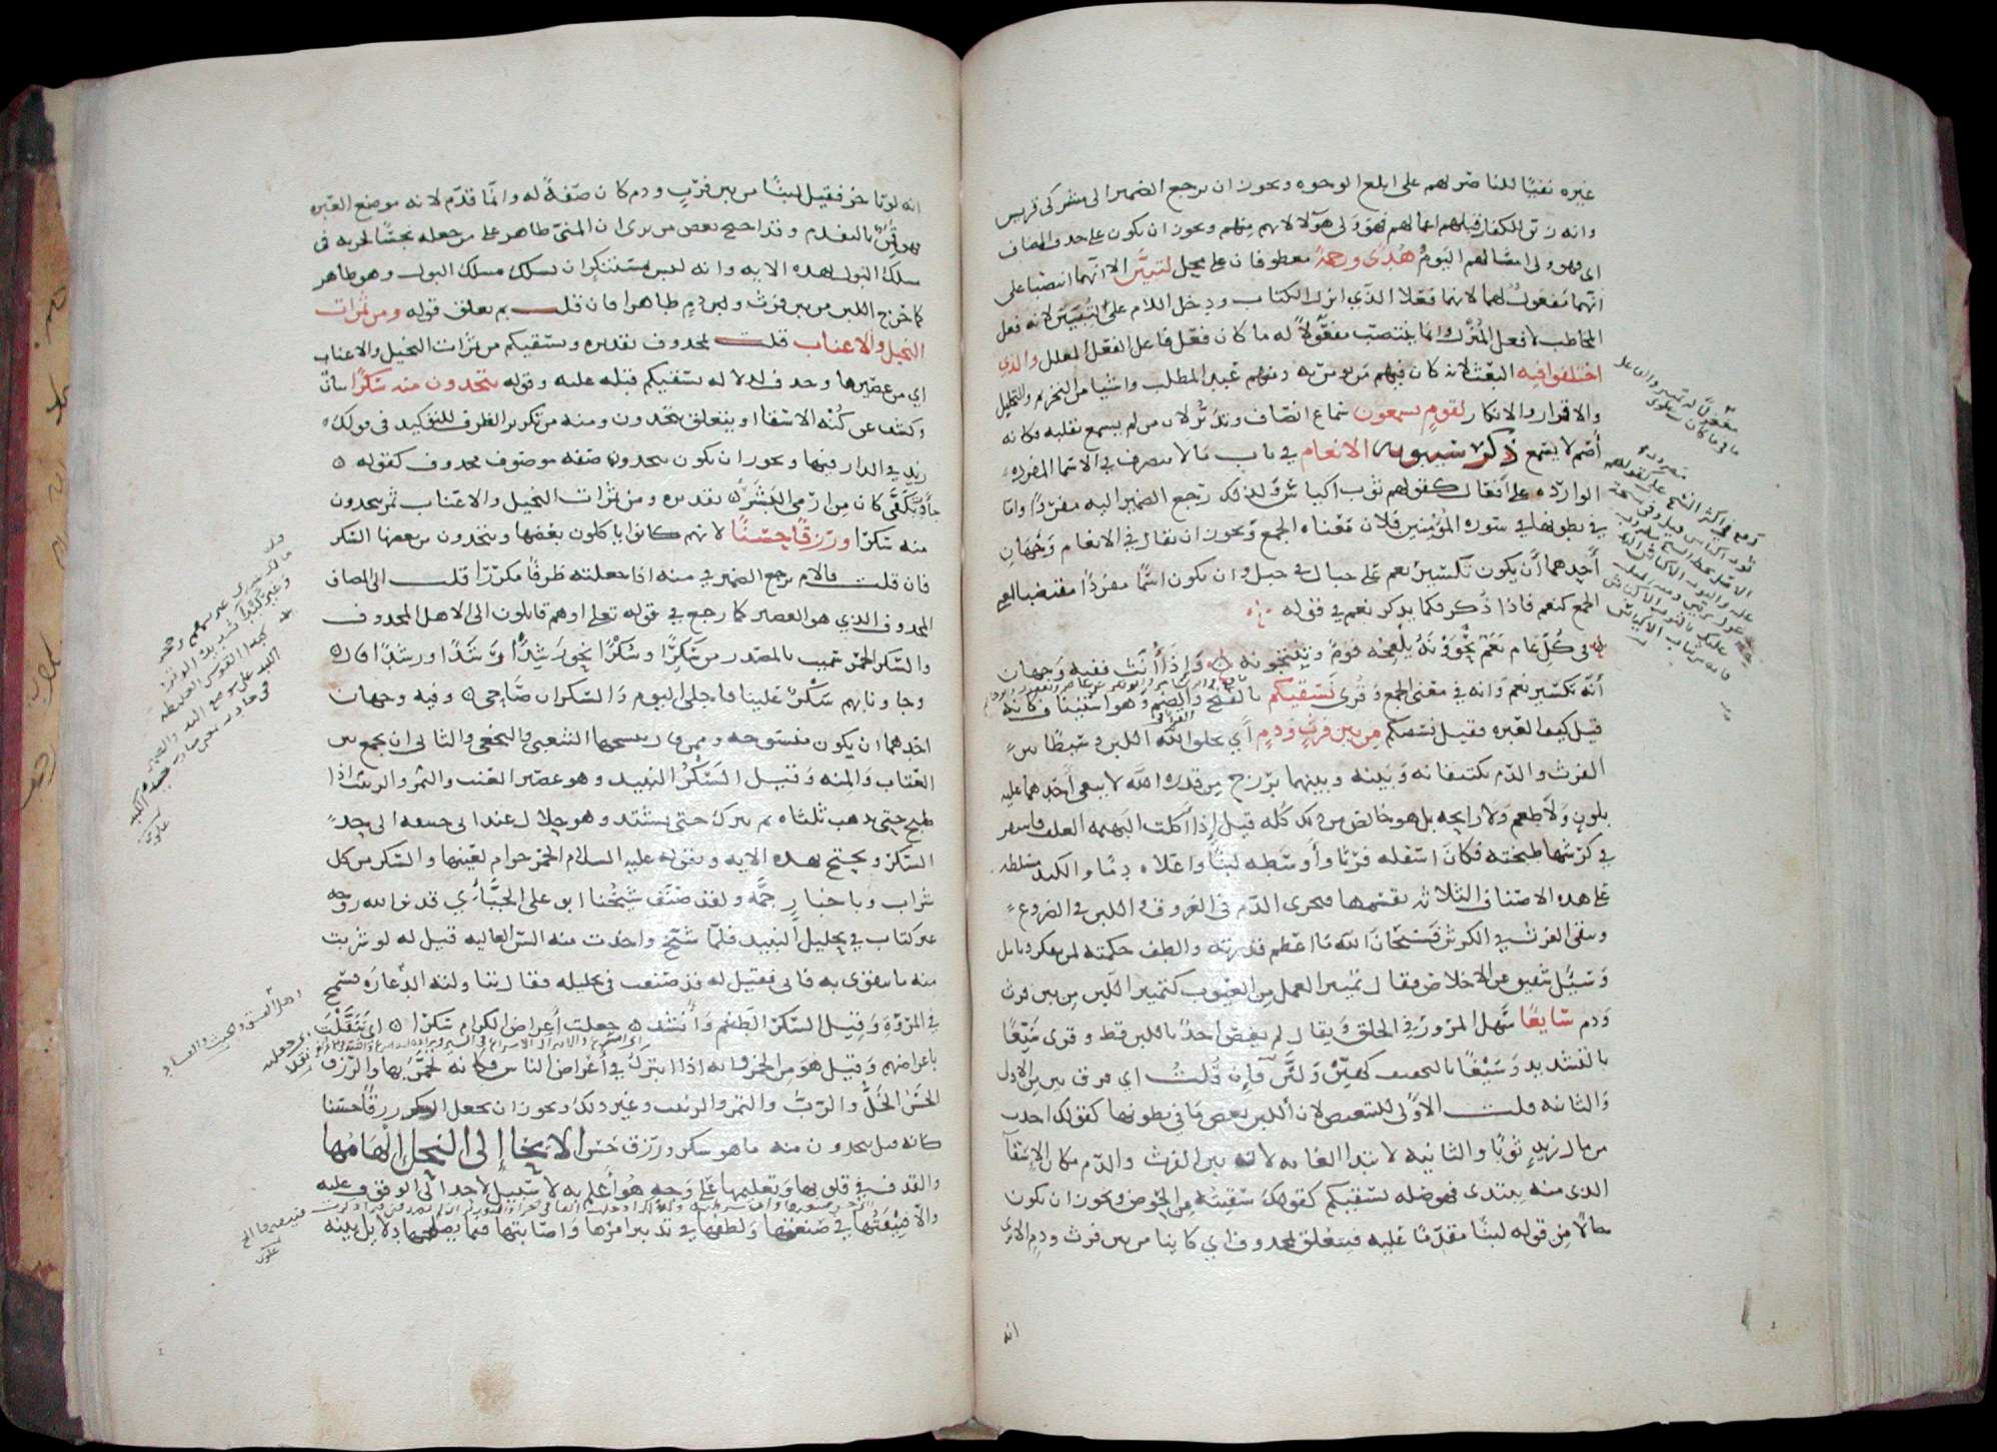 غيره نفيًا للناصر لهم على ابلغ الوجوه ويجوز ان يرجع الضمير الى مشركى قريش
وانه زين للكفار قبلهم اعمالهم فهو ولى هؤلا لانهم منهم ويجوز ان يكون على حذف المضاف
اى فهو ولى امثالهم اليوم هُدًى ورحمةً معطوفان على محل لتبيّن الا انّهما انتصبا على
انّهما مفعولٌ لهما لانهما فعلا الذي انزل الكتاب ودخل اللام على لتبيّن لانه فعل
المخاطب لا فعل المُنزل وانما ينتصب مفعولاً له ما كان فعل فاعل الفعل المعلل والذي
اختلفوا فيه البعث لانه كان فيهم من يؤمن به ومنهم عبد المطلب واشيا من التحريم والتحليل
والاقرار والانكار لقوم يسمعون سماع انصاف وتدبّر لان من لم يسمع بقلبه فكانه
أصم لا يسمع ذكر سيبويه الانعام في باب ما لا ينصرف في الاسما المفرده
الوارده على أفعال كقولهم ثوب اكياش ولذلك رجع الضمير اليه مفردًا واما
في بطونها في سوره المؤمنين فلان معناه الجمع ويجوز ان يقال في الانعام وجهان
أحدهما أن يكون تكسير نعم كاجبال في جبل وان يكون اسمًا مفردًا مقتضيا لمعنى
الجمع كنعم فاذا ذُكر فكما يذكر نعم في قوله
في كُلِّ عام نَعَمٌ تحوونَهُ يُلقِحُه قومٌ وتنتجونه واذا أُنّث ففيه وجهان
أنّه تكسير نعم وانه في معنى الجمع وقُرى نسقيكم بالفتح والضم وهو استئناف كانه
قيل كيف العبره فقيل نسقيكم من بين فرث ودم أي يخلق الله اللبن وسيطًا بين
الفرث والدّم يكتنفانه وبينه وبينهما برزخ من قدرة الله لا يبغى أحدهما عليه
بلون ولا طعم ولا رايحه بل هو خالص من ذلك كُله قيل إذا أكلت البهيمه العلف فاستقر
في كرشها طبخته فكان اسفله فرثًا وأوسطه لبنًا واعلاه دمًا والكبد مسلطه
على هذه الاصناف الثلاثه تقسمها فتجرى الدّم في العروق واللبن في الضروع
وتبقى الفرث في الكرش فسبحان الله ما اعظم قدرته والطف حكمته لمن تفكر وتامل
وسُئل شقيق عن الاخلاص فقال تمييز العمل من العيوب كتمييز اللبن من بين فرث
ودم سايغًا سهل المرور في الحلق ويقال لم يغص احدٌ باللبن قط وقرى سيّغًا
بالتشديد وسَيْغًا بالتخفيف كهيّن ولَيّن فإن قُلتُ اي فرق بين من الاولى
والثانيه قلت الاولى للتبعيض لان اللبن بعض ما في بطونها كقولك اخذت
من مال زيدٍ ثوبًا والثانيه لابتدا الغايه لان بين الفرث والدّم مكان الإسقآ
الذى منه يبتدى فهو صله لنسقيكم كقولك سقيته من الحوض ويجوز ان يكون
حالاً من قوله لبنًا مقدّمًا عليه فيتعلق بمحذوف اي كاينا من بين فرث ودم الا ترى
انه
انه لو تاخر فقيل لبنًا من بين فرث ودم كان صفةً له وانّما قدّم لانه موضع العبره
فهو قَمِن بالتقدم وقد احتج بعض من يرى ان المنىّ طاهر على من جعله نجسًا لجريه فى
مسلك البول بهذه الايه وانه ليس بمستنكر ان يسلك مسلك البول وهو طاهر
كما خرج اللبن من بين فرث ودم طاهرا فان قلت بم تعلق قوله ومن ثمرات
النخيل والاعناب قلت بمحذوف تقديره ونسقيكم من ثمرات النخيل والاعناب
اي من عصيرها وحذف لدلاله نسقيكم قبله عليه وقوله تتخذون منه سكرًا بيان
وكشف عن كُنْه الاسقا او يتعلق بتتخذون ومنه من تكرير الظرف للتوكيد فى قولك
زيد في الدار فيها ويجوز ان يكون تتخذون صفه موصوف محذوف كقوله
جادَتْ بكفَّى كان من ارمى البَشَر تقديره ومن ثمرات النخيل والاعناب ثمر تتخذون
منه سكرًا ورزقًا حسنًا لانهم كانوا ياكلون بعضها ويتخذون من بعضها السكر
فان قلت فالام يرجع الضمير في منه اذا جعلته ظرفًا مكررًا قلت الى المضاف
المحذوف الذي هو العصير كما رجع في قوله تعالى اوهم قايلون الى الاهل المحذوف
والسّكر الخمر سميت بالمصدر من سَكِرَ سَكَرًا وسُكْرًا نحو رَشِدَ رَشَدًا ورُشدًا قال
وجاونا بهم سَكَرٌ علينا فاجلى اليوم والسكران صاحى وفيه وجهان
احدهما ان يكون منسوخه وممن قال بنسخها الشعبى والنخعى والثانى ان يجمع بين
العتاب والمنه وقيل السَّكَرُ النبيذ وهو عصير العنب والتمر والزبيب اذا
طبخ حتى يذهب ثلثاه ثم يترك حتى يشتد وهو حلال عند ابى حنيفه الى حد
السكر ويحتج بهذه الايه وبقوله عليه السلام الخمر حرام لعينها والسكر من كل
شراب وباخبار جمّه ولقد صنف شيخنا ابو على الجبّائي قدس الله روحه
غير كتاب في تحليل النبيذ فلمّا شيّخ واخذت منه السن العاليه قيل له لو شربت
منه ما تتقوى به فابى فقيل له فقد صنفت فى تحليله فقال تناولته الدّعاره فسمج
في المروّه وقيل السكر الطعم وأنشد جعلتَ أعراض الكرام سكرًا اي تنقّلتَ
باعراضهم وقيل هو من الخمر وانه اذا ابتركَ في أعراض الناس فكانه تخمّر بها والرّزق
الحسن الخلّ والرّبّ والتمر والزبيب وغير ذلك ويجوز ان يجعل السكر رزقًا حسنا
كانه قيل تتخذون منه ما هو سكر ورزق حسن الايحا إلى النحل إلهامُها
والقذف في قلوبها وتعليمها على وجهٍ هُوَ أعلم به لا سبيل لاحد الى الوقوف عليه
والّا فنِيْقَتُها في صنعتها ولطفها في تدبير امرها واصابتها فيما يصلحها دلايل بينه